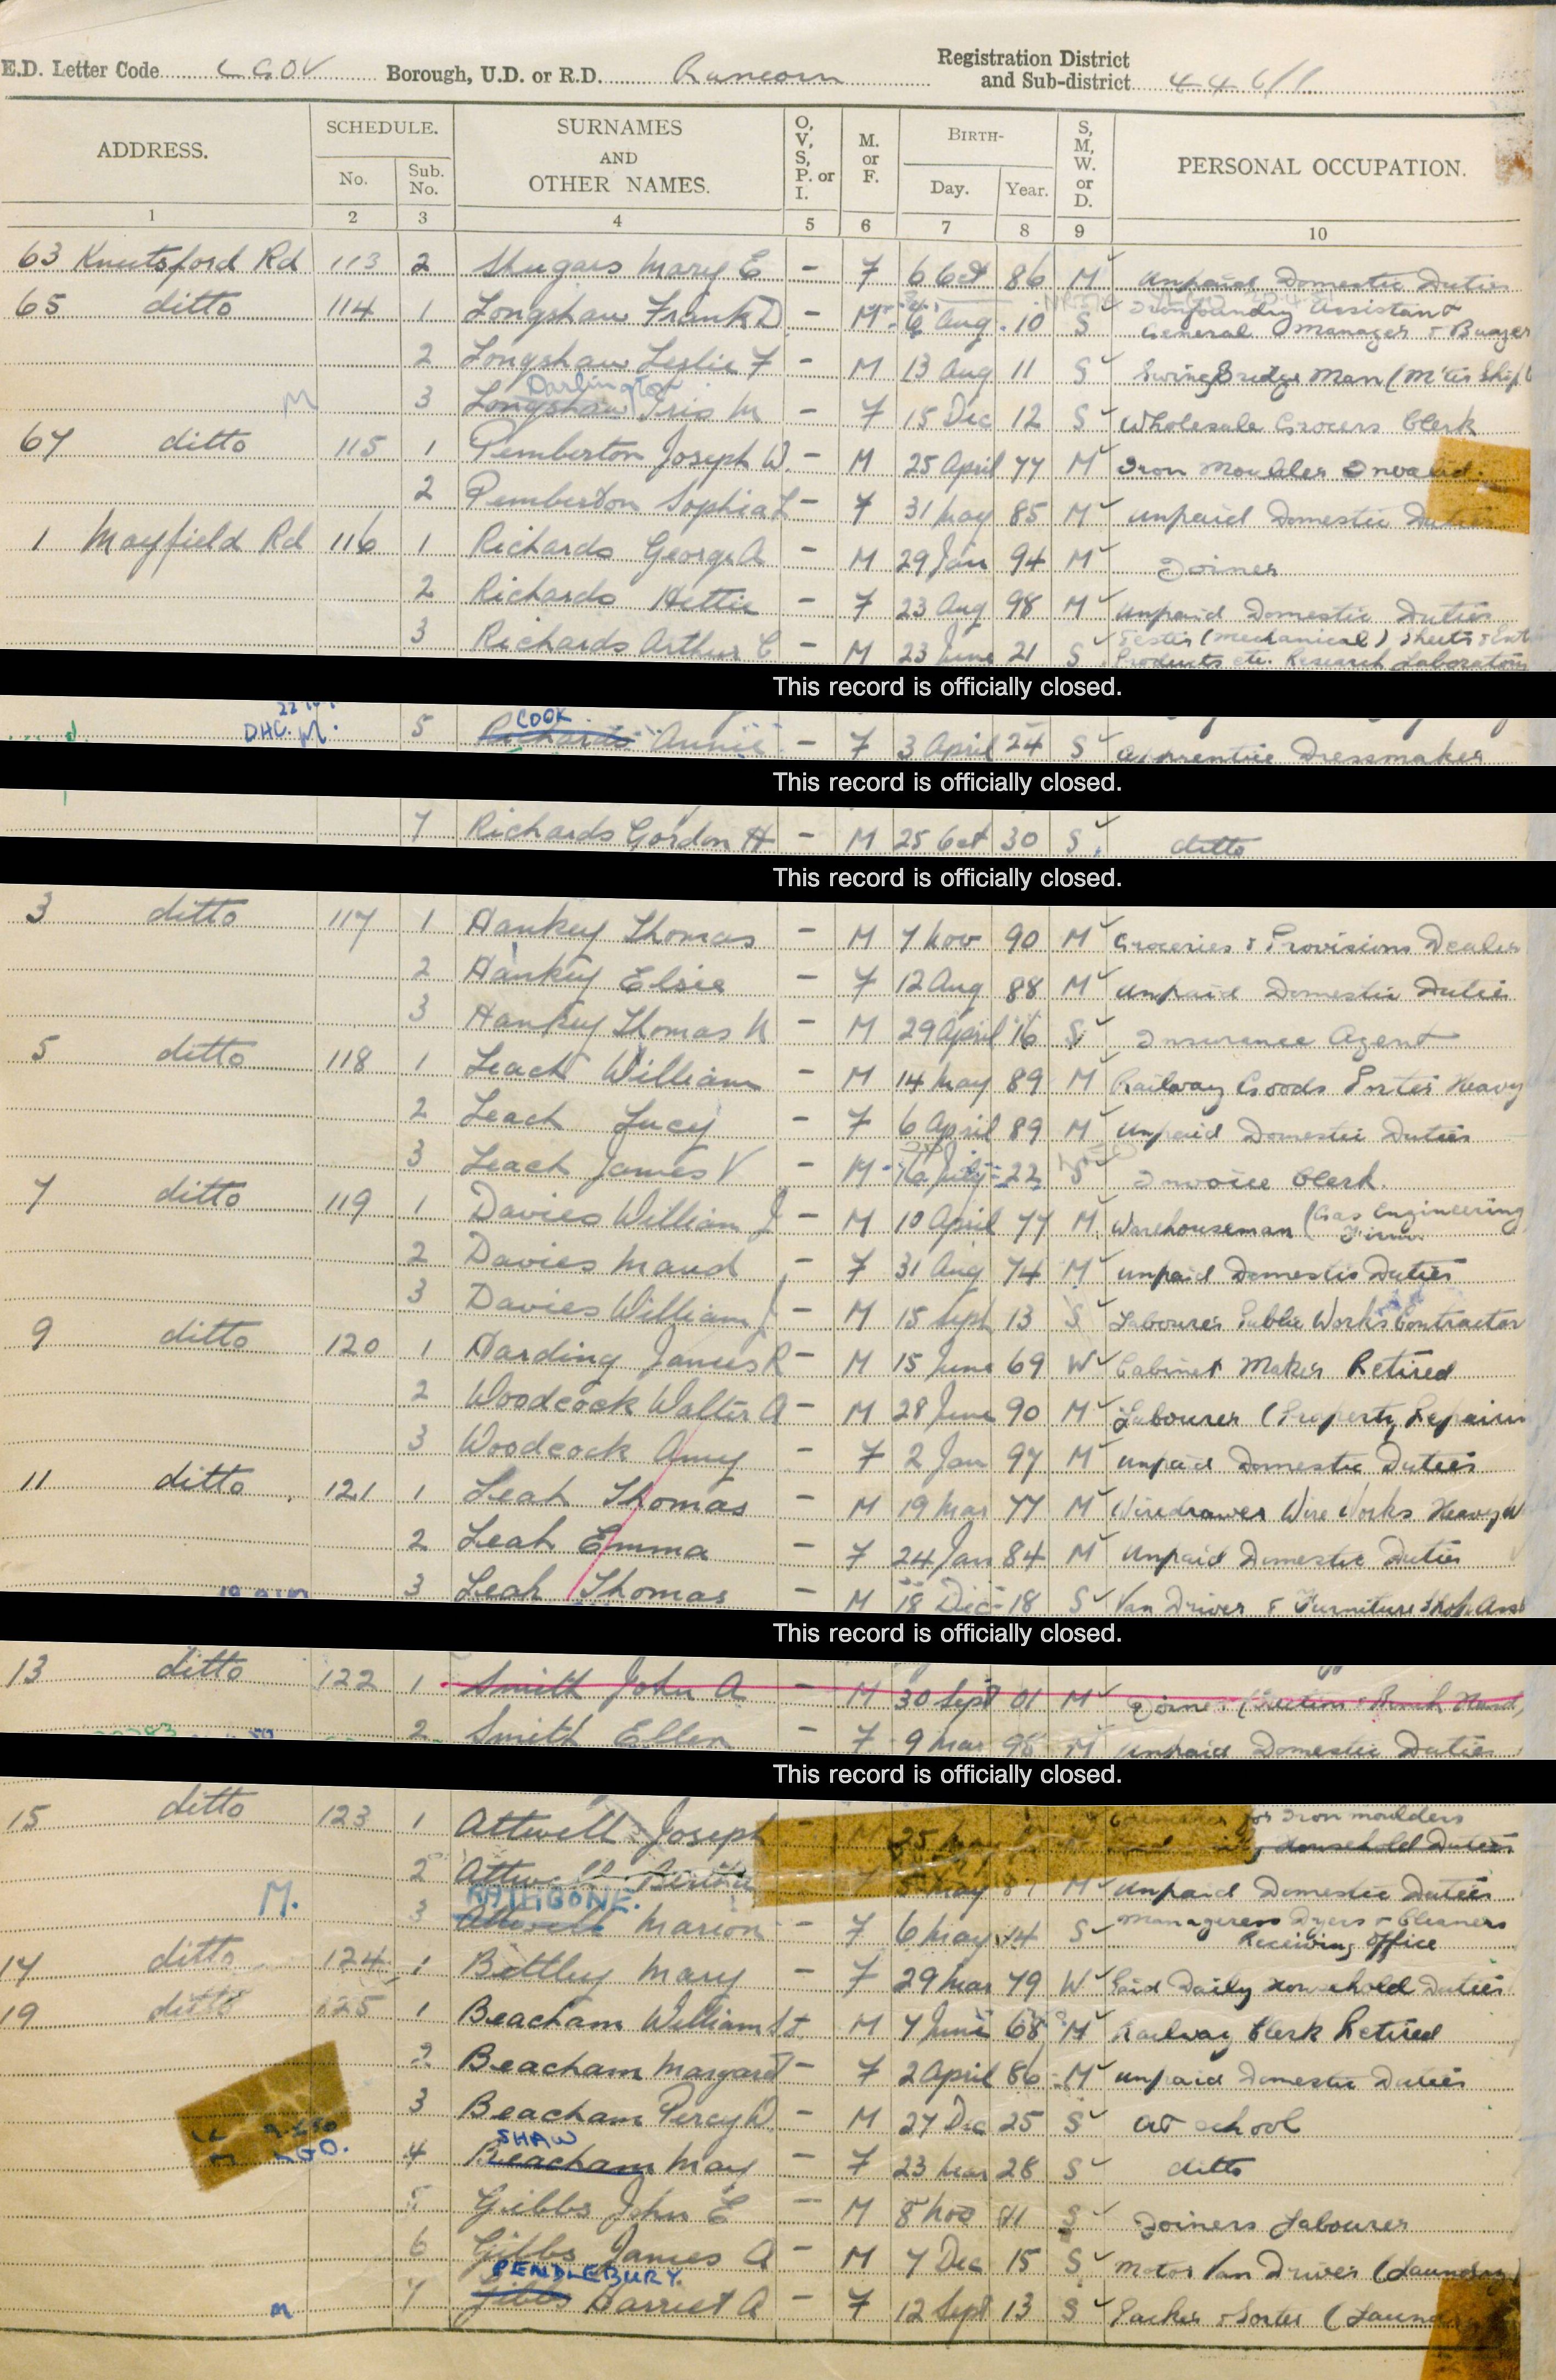 E.D. Letter Code Borough, U.D. or R.D. Runcorn Registration District and Sub-district 446/1
ADDRESS. SCHEDULE. No. Sub. No. SURNAMES AND OTHER NAMES. O, V, S, P. or I. M. or F. BIRTH- Day. Year. S, M, W. or D. PERSONAL OCCUPATION.
1 2 3 4 5 6 7 8 9 10
63 Knutsford Rd 113 2 Mary E - F 6 Oct 86 M Unpaid Domestic Duties
65 ditto 114 1 Longshaw Frank D - M 6 Aug 10 S Ironfoundry Assistant General Manager & Buyer
2 Longshaw Leslie F - M 13 Aug 11 S Swing Bridge Man (M'cr Ship
M 3 Longshaw Darlington Iris M - F 15 Dec 12 S Wholesale Grocers Clerk
67 ditto 115 1 Pemberton Joseph W. - M 25 April 77 M Iron Moulder Invalid.
2 Pemberton Sophia L - F 31 May 85 M Unpaid Domestic Duties
1 Mayfield Rd 116 1 Richards George A - M 29 Jan 94 M Joiner
2 Richards Hettie - F 23 Aug 98 M Unpaid Domestic Duties
3 Richards Arthur C - M 23 June 21 S Tester (Mechanical) Sheets & Products etc. Research Laboratory
This record is officially closed.
DHC. M. 5 Richards COOK Annie - F 3 April 24 S Apprentice Dressmaker
This record is officially closed.
7 Richards Gordon H - M 25 Oct 30 S ditto
This record is officially closed.
3 ditto 117 1 Hankey Thomas - M 7 Nov 90 M Groceries & Provisions Dealer
2 Hankey Elsie - F 12 Aug 88 M Unpaid Domestic Duties
3 Hankey Thomas N - M 29 April 16 S Insurance Agent
5 ditto 118 1 Leach William - M 14 May 89 M Railway Goods Porter Heavy
2 Leach Lucy - F 6 April 89 M Unpaid Domestic Duties
3 Leach James V - M July 22 S Invoice Clerk.
7 ditto 119 1 Davies William J - M 10 April 77 M Warehouseman (Gas Engineering Firm
2 Davies Maud - F 31 Aug 74 M Unpaid Domestic Duties
3 Davies William J - M 15 Sept 13 S Labourer Public Works Contractor
9 ditto 120 1 Harding James R - M 15 June 69 W Cabinet Maker Retired
2 Woodcock Walter A - M 28 June 90 M Labourer (Property Repairing
3 Woodcock Amy - F 2 Jan 97 M Unpaid Domestic Duties
11 ditto 121 1 Leah Thomas - M 19 Mar 77 M Wiredrawer Wire Works Heavy W
2 Leah Emma - F 24 Jan 84 M Unpaid Domestic Duties
3 Leah Thomas - M 18 Dec 18 S Van Driver & Furniture Shop Asst
This record is officially closed.
13 ditto 122 1 Smith John A - M 30 Sept 01 M Joiner Bench Hand)
2 Smith Ellen - F 9 Mar 98 M Unpaid Domestic Duties
This record is officially closed.
15 ditto 123 1 Attwell Joseph M 25 May Coremaker for Iron Moulders Household Duties
2 Attwell May M Unpaid Domestic Duties
M. 3 Attwell RATHBONE. Marion - F 6 May 14 S Manageress Dyers & Cleaners Receiving Office
17 ditto 124 1 Bettley Mary - F 29 Mar 79 W Paid Daily Household Duties
19 ditto 125 1 Beacham William St. M 7 June 68 M Railway Clerk Retired
2 Beacham Margaret - F 2 April 86 M Unpaid Domestic Duties
3 Beacham Percy W. - M 27 Dec 25 S At School
4 Beacham SHAW May - F 23 Mar 28 S ditto
5 Gibbs John E - M 8 Nov 11 S Joiners Labourer
6 Gibbs James A - M 7 Dec 15 S Motor Van Driver (Laundry)
M 7 Gibbs PENDLEBURY. Harriet A - F 12 Sept 13 S Packer & Sorter (Laundry